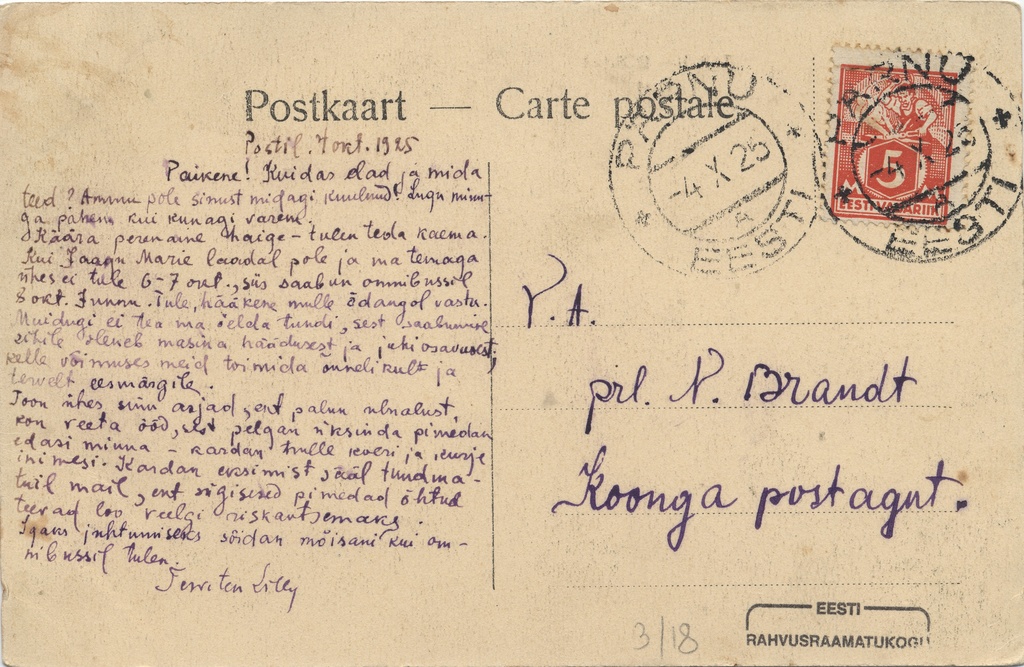 Postkaart — Carte postale.
PÄRNU
-4 X 25
EESTI
PÄRNU
-4 X 25
EESTI
5
EESTI VABARIIK
Postil. 4 okt. 1925
Päikene! Kuidas elad ja mida
teed? Ammu pole sinust midagi kuulnud! Lugu minu-
ga pahem kui kunagi varem.
Käära perenaine haige – tulen teda kaema.
Kui Jaagu Marie laadal pole ja ma temaga
ühes ei tule 6-7 okt., siis saabun omnibussil
8 okt. Tule, hääkene mulle õdangol vasta.
Muidugi ei tea ma öelda tundi, sest saabumine
sihile oleneb masina häädusest ja juhi osavusest,
kelle võimuses meid toimida õnnelikult ja
tervelt eesmärgile.
Toon ühes sinu asjad, ent palun
kon veeta ööd, sest pelgan üksinda pimedan
edasi minna – kardan hulle koeri ja kurje
inimesi. Kardan eksimist sääl tundma-
tuil mail, ent sügisesed pimedad õhtud
teevad loo veelgi riskantsemaks.
Igaks juhtumiseks sõidan mõisani kui om-
nibussil tulen.
Terviten Lilly
P. A.
prl. N. Brandt
Koonga postagnt.
3/18
EESTI
RAHVUSRAAMATUKOGU